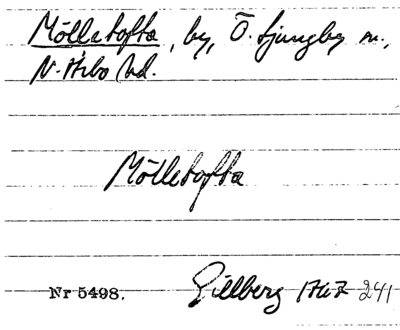 Möllatofta, by, Ö. Ljungby sn.,
N. Åsbo hd.
Mölletofta
Nr 5498. Gillberg 1767 241